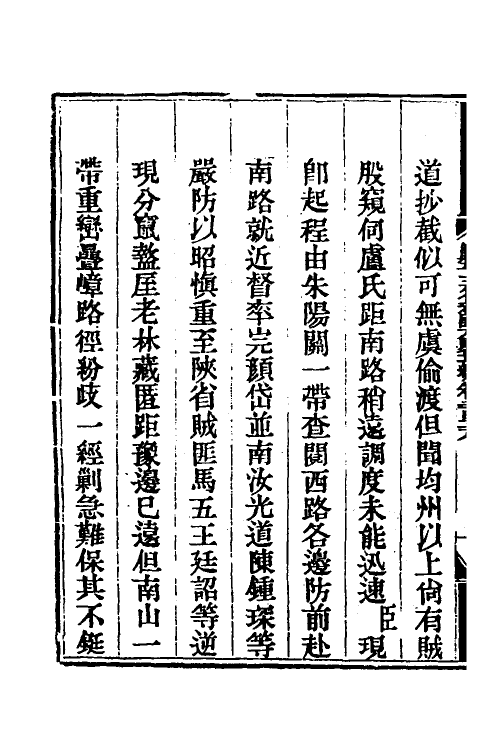 道抄截似可無虞偷渡但聞均州以上尙有賊
股窺伺盧氏距南路稍遠調度未能迅速臣現
卽起程由朱陽關一帶查閱西路各邊防前赴
南路就近督率完顏岱並南汝光道陳鍾琛等
嚴防以昭愼重至陜省賊匪馬五王廷詔等逆
現分竄盩厔老林藏匿距豫邊已遠但南山一
帶重巒疊嶂路徑紛歧一經剿急難保其不鋌